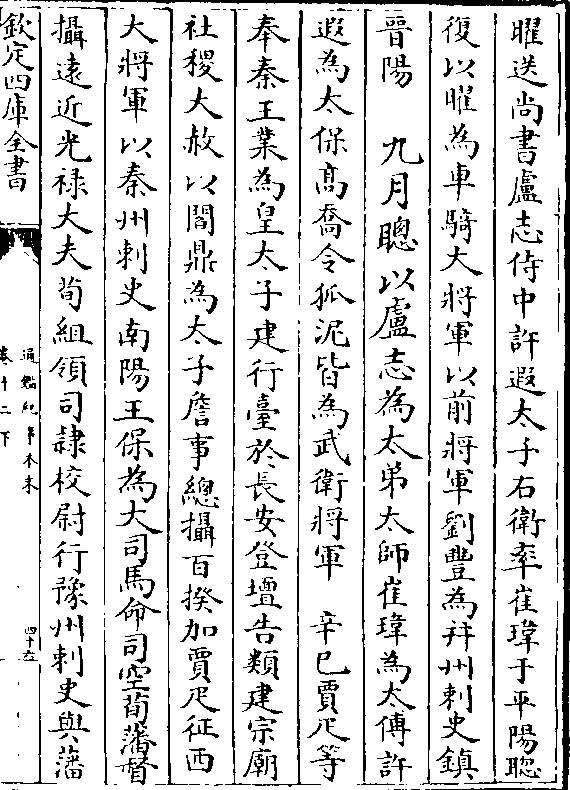 曜送尚書盧志侍中許遐太子右衛率崔瑋于平陽聰
復以曜為車騎大將軍以前將軍劉豐為并州刺史鎮
晉陽　九月聰以盧志為太弟太師崔瑋為太傅許
遐為太保高喬令狐泥皆為武衛將軍　辛巳賈疋等
奉秦王業為皇太子建行臺於長安登壇告類建宗廟
社稷大赦以閻鼎為太子詹事總攝百揆加賈疋征西
大將軍以秦州刺史南陽王保為大司馬命司空荀藩督
攝遠近光禄大夫荀組領司隸校尉行豫州刺史與藩
欽定四庫全書
通鑑紀事本末
卷十二下